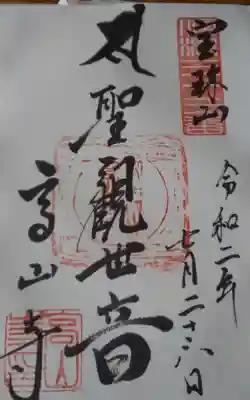 宝珠山
令和二年
七月二十六日
聖觀世音
高山寺